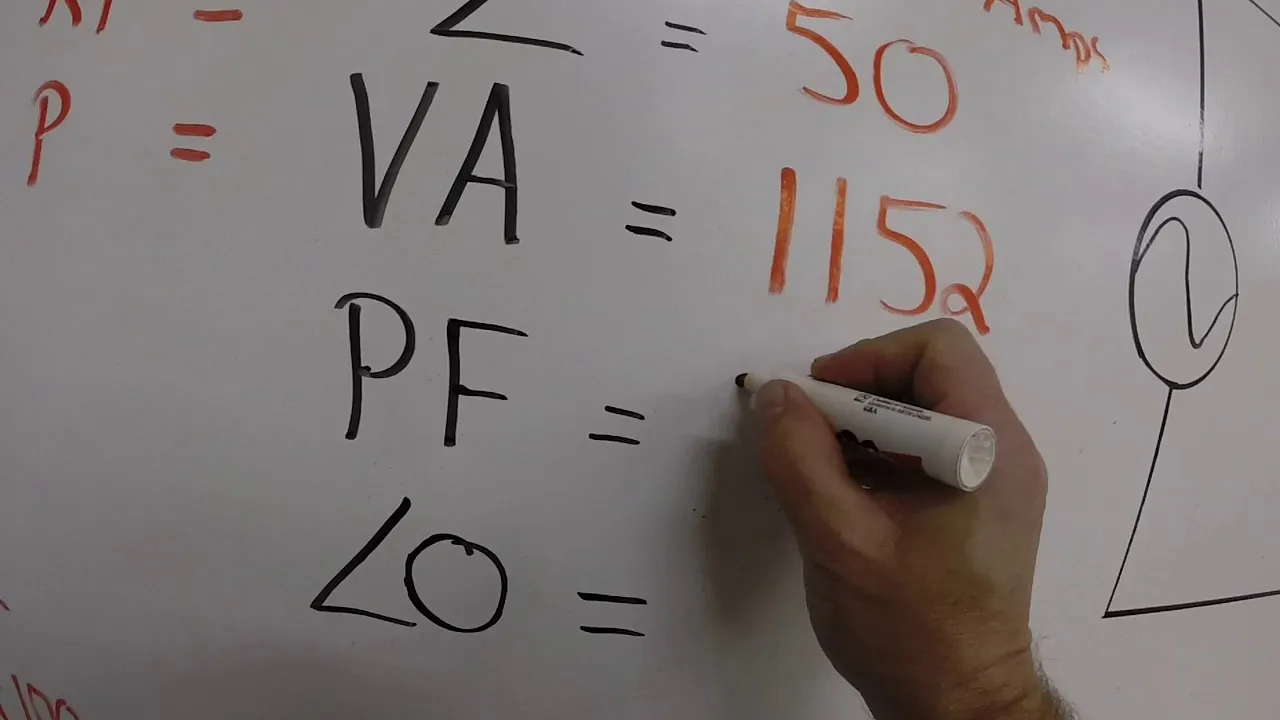 Z = 50 Amps
P = VA = 1152
PF =
∠O =